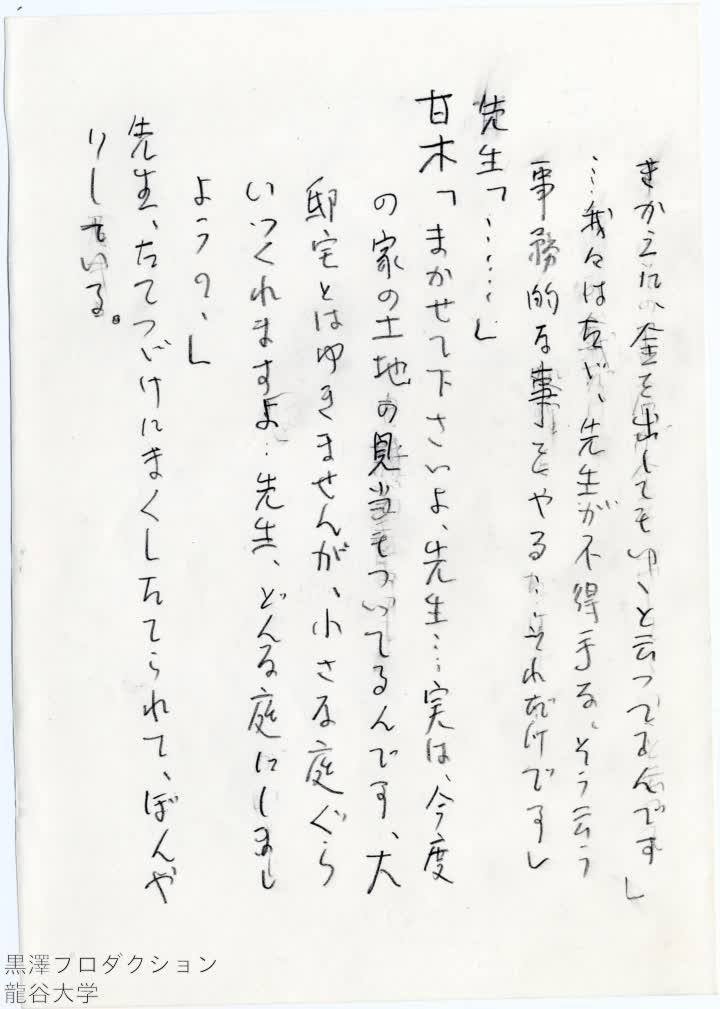 きかえに、金を出してもいゝと云ってるんです」
…我々はたゞ、先生が不得手な、そう云う
事務的な事をやる…それだけです」
先生「……」
甘木「まかせて下さいよ、先生…実は、今度
の家の土地の見当もついてるんです、大
邸宅とはゆきませんが、小さな庭ぐら
いつくれますよ…先生、どんな庭にしまし
ようの、」
先生、たてつゞけにまくしたてられて、ぼんや
りしている。
黒澤プロダクション
龍谷大学